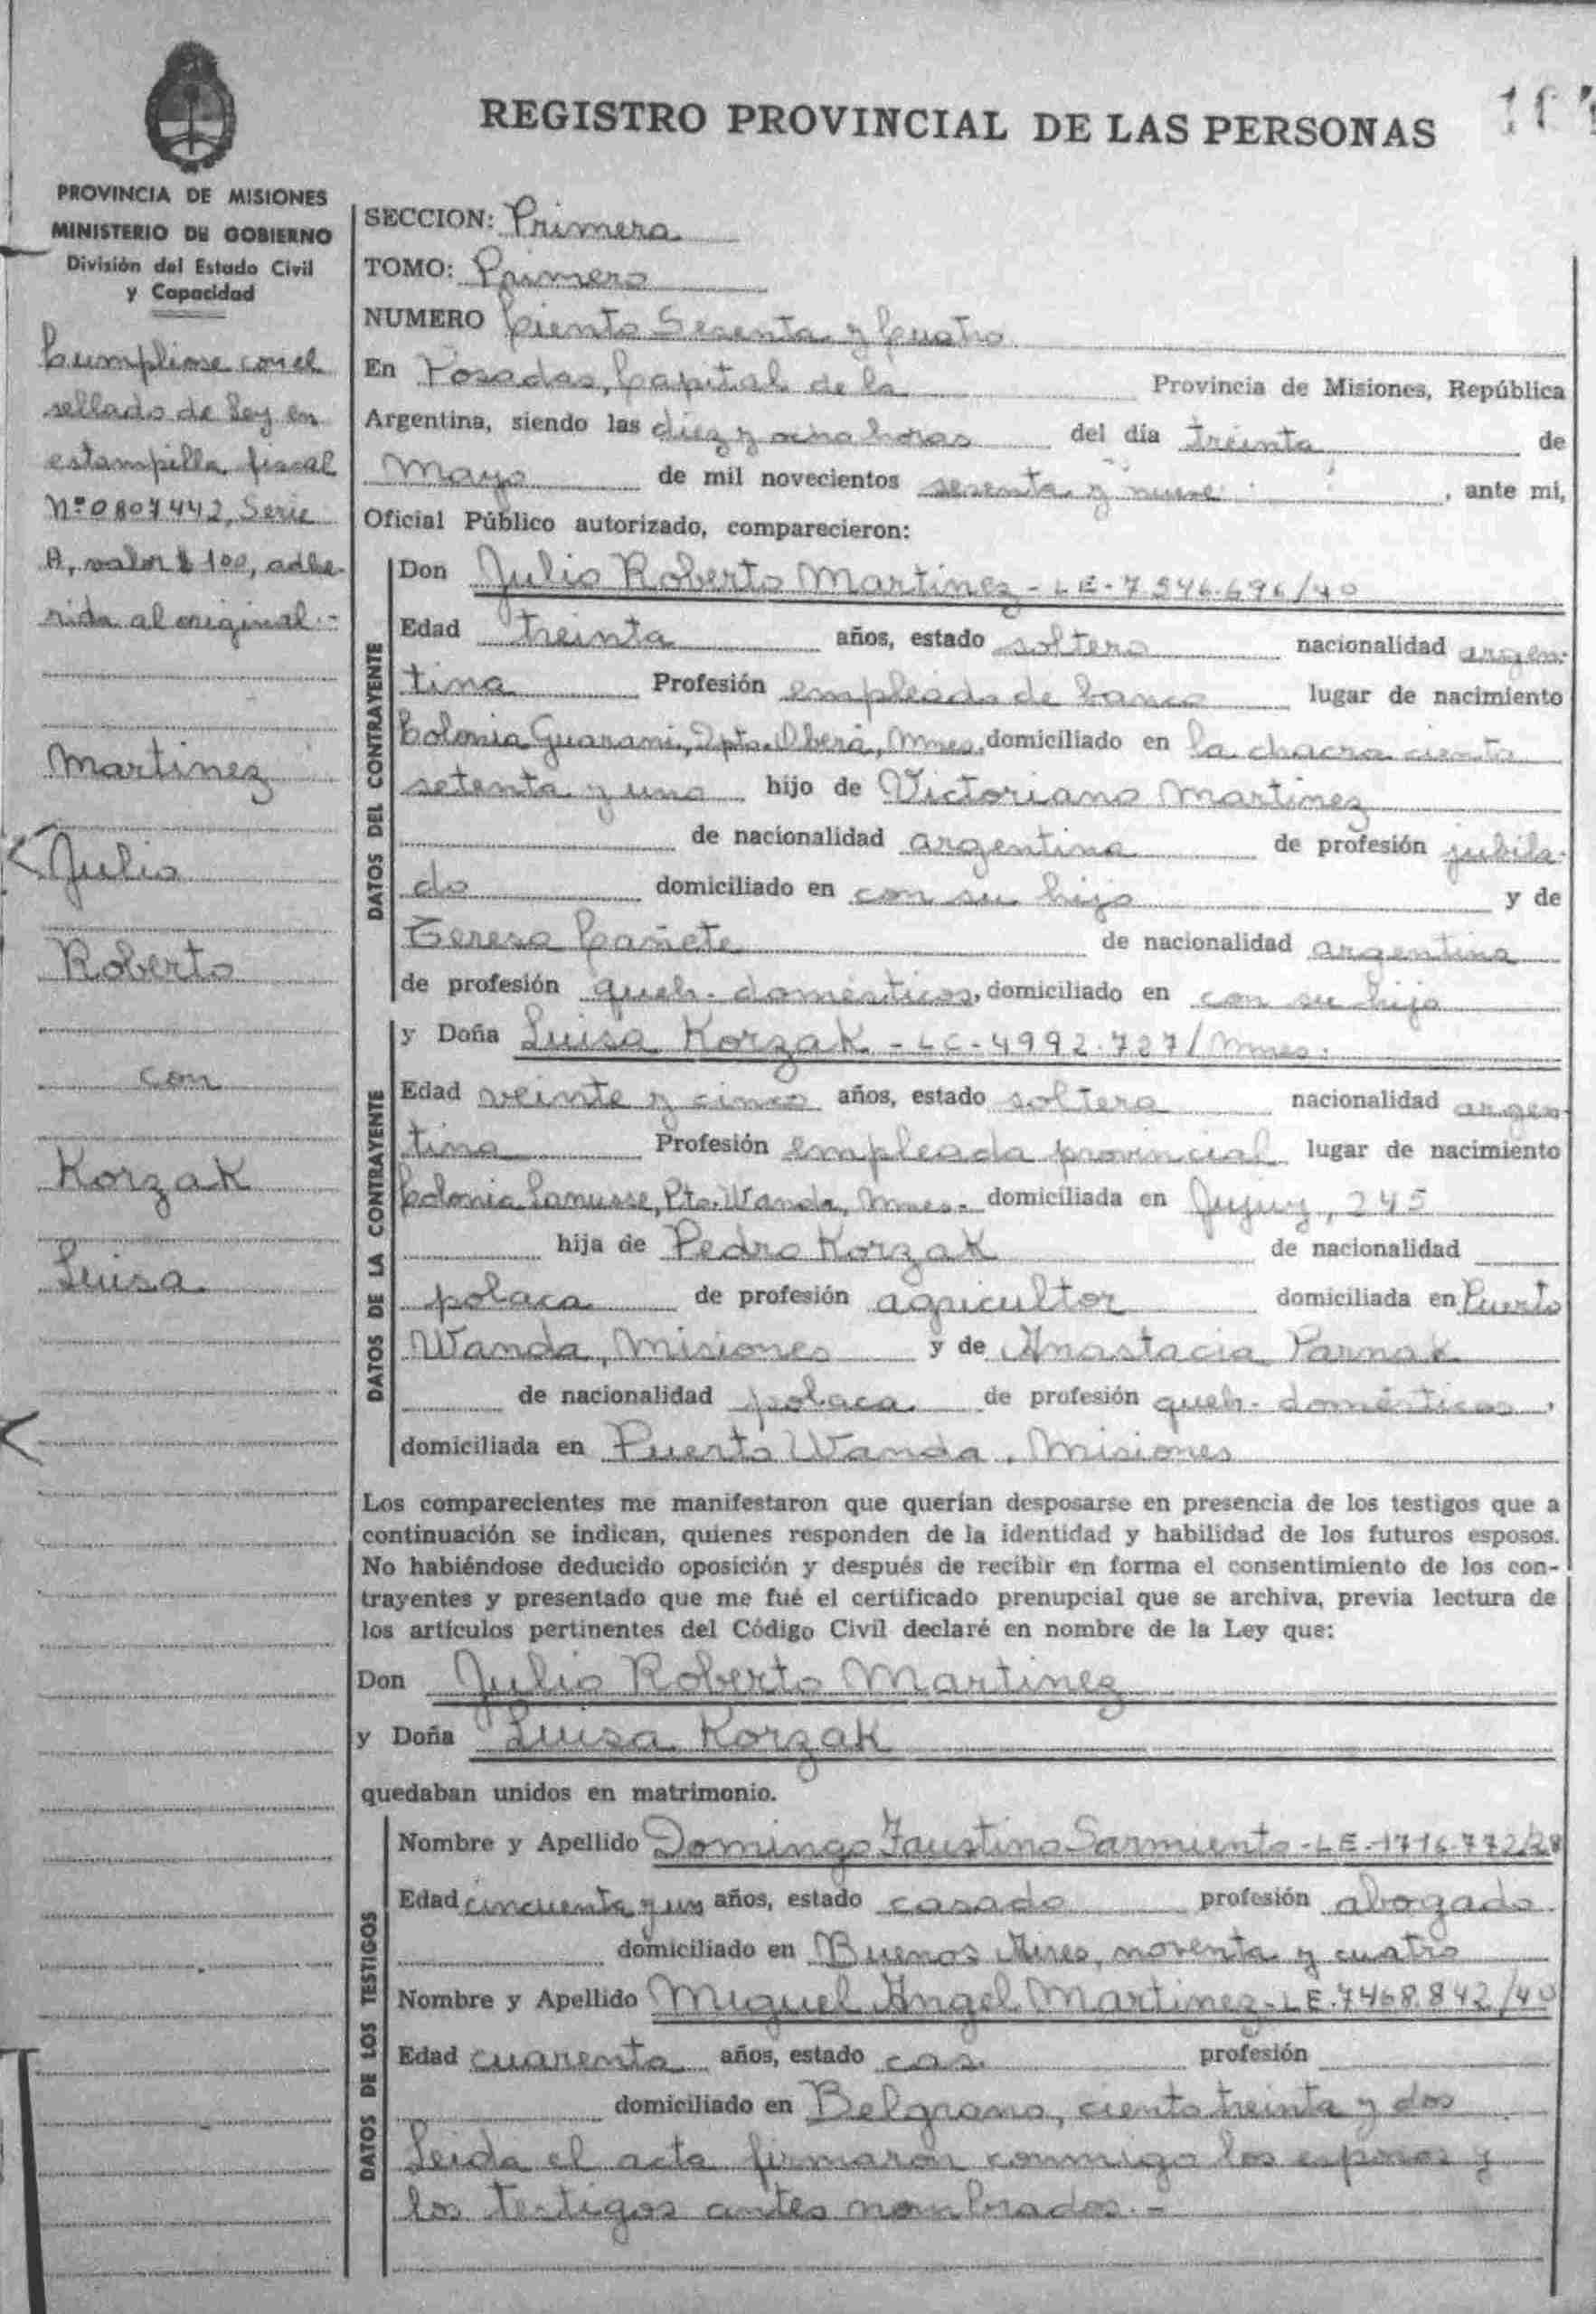 REGISTRO PROVINCIAL DE LAS PERSONAS
PROVINCIA DE MISIONES
MINISTERIO DE GOBIERNO
División del Estado Civil
y Capacidad
Cumpliose con el
sellado de Ley en
estampilla fiscal
Nº 0807442, Serie
A, valor $ 100, adhe-
rida al original.-
Martinez
Julio
Roberto
con
Korzak
Luisa
SECCION: Primera
TOMO: Primero
NUMERO Ciento Sesenta y Cuatro
En Posadas, Capital de la Provincia de Misiones, República
Argentina, siendo las diez y ocho horas del día treinta de
Mayo de mil novecientos sesenta y nueve, ante mi,
Oficial Público autorizado, comparecieron:
DATOS DEL CONTRAYENTE
Don Julio Roberto Martinez - LE-7.546.696/40
Edad treinta años, estado soltero nacionalidad argen-
tina Profesión empleado de banco lugar de nacimiento
Colonia Guaraní, Dpto. Oberá, Mnes. domiciliado en la chacra ciento
setenta y uno hijo de Victoriano Martinez
de nacionalidad argentina de profesión jubila-
do domiciliado en con su hijo y de
Teresa Cañete de nacionalidad argentina
de profesión queh. domésticos, domiciliado en con su hijo
DATOS DE LA CONTRAYENTE
y Doña Luisa Korzak - LC-4992.727/Mnes.
Edad veinte y cinco años, estado soltera nacionalidad argen-
tina Profesión empleada provincial lugar de nacimiento
Colonia Lanusse, Pto. Wanda, Mnes. domiciliada en Jujuy, 245
hija de Pedro Korzak de nacionalidad
polaca de profesión agricultor domiciliada en Puerto
Wanda, Misiones y de Anastacia Parnak
de nacionalidad polaca de profesión queh. domésticos,
domiciliada en Puerto Wanda, Misiones
Los comparecientes me manifestaron que querían desposarse en presencia de los testigos que a
continuación se indican, quienes responden de la identidad y habilidad de los futuros esposos.
No habiéndose deducido oposición y después de recibir en forma el consentimiento de los con-
trayentes y presentado que me fué el certificado prenupcial que se archiva, previa lectura de
los artículos pertinentes del Código Civil declaré en nombre de la Ley que:
Don Julio Roberto Martinez
y Doña Luisa Korzak
quedaban unidos en matrimonio.
DATOS DE LOS TESTIGOS
Nombre y Apellido Domingo Faustino Sarmiento - LE-1716.772/28
Edad cincuenta y un años, estado casado profesión abogado
domiciliado en Buenos Aires, noventa y cuatro
Nombre y Apellido Miguel Angel Martinez - LE.7468.842/40
Edad cuarenta años, estado cas. profesión
domiciliado en Belgrano, ciento treinta y dos
Leida el acta firmaron conmigo los esposos y
los testigos antes nombrados.-